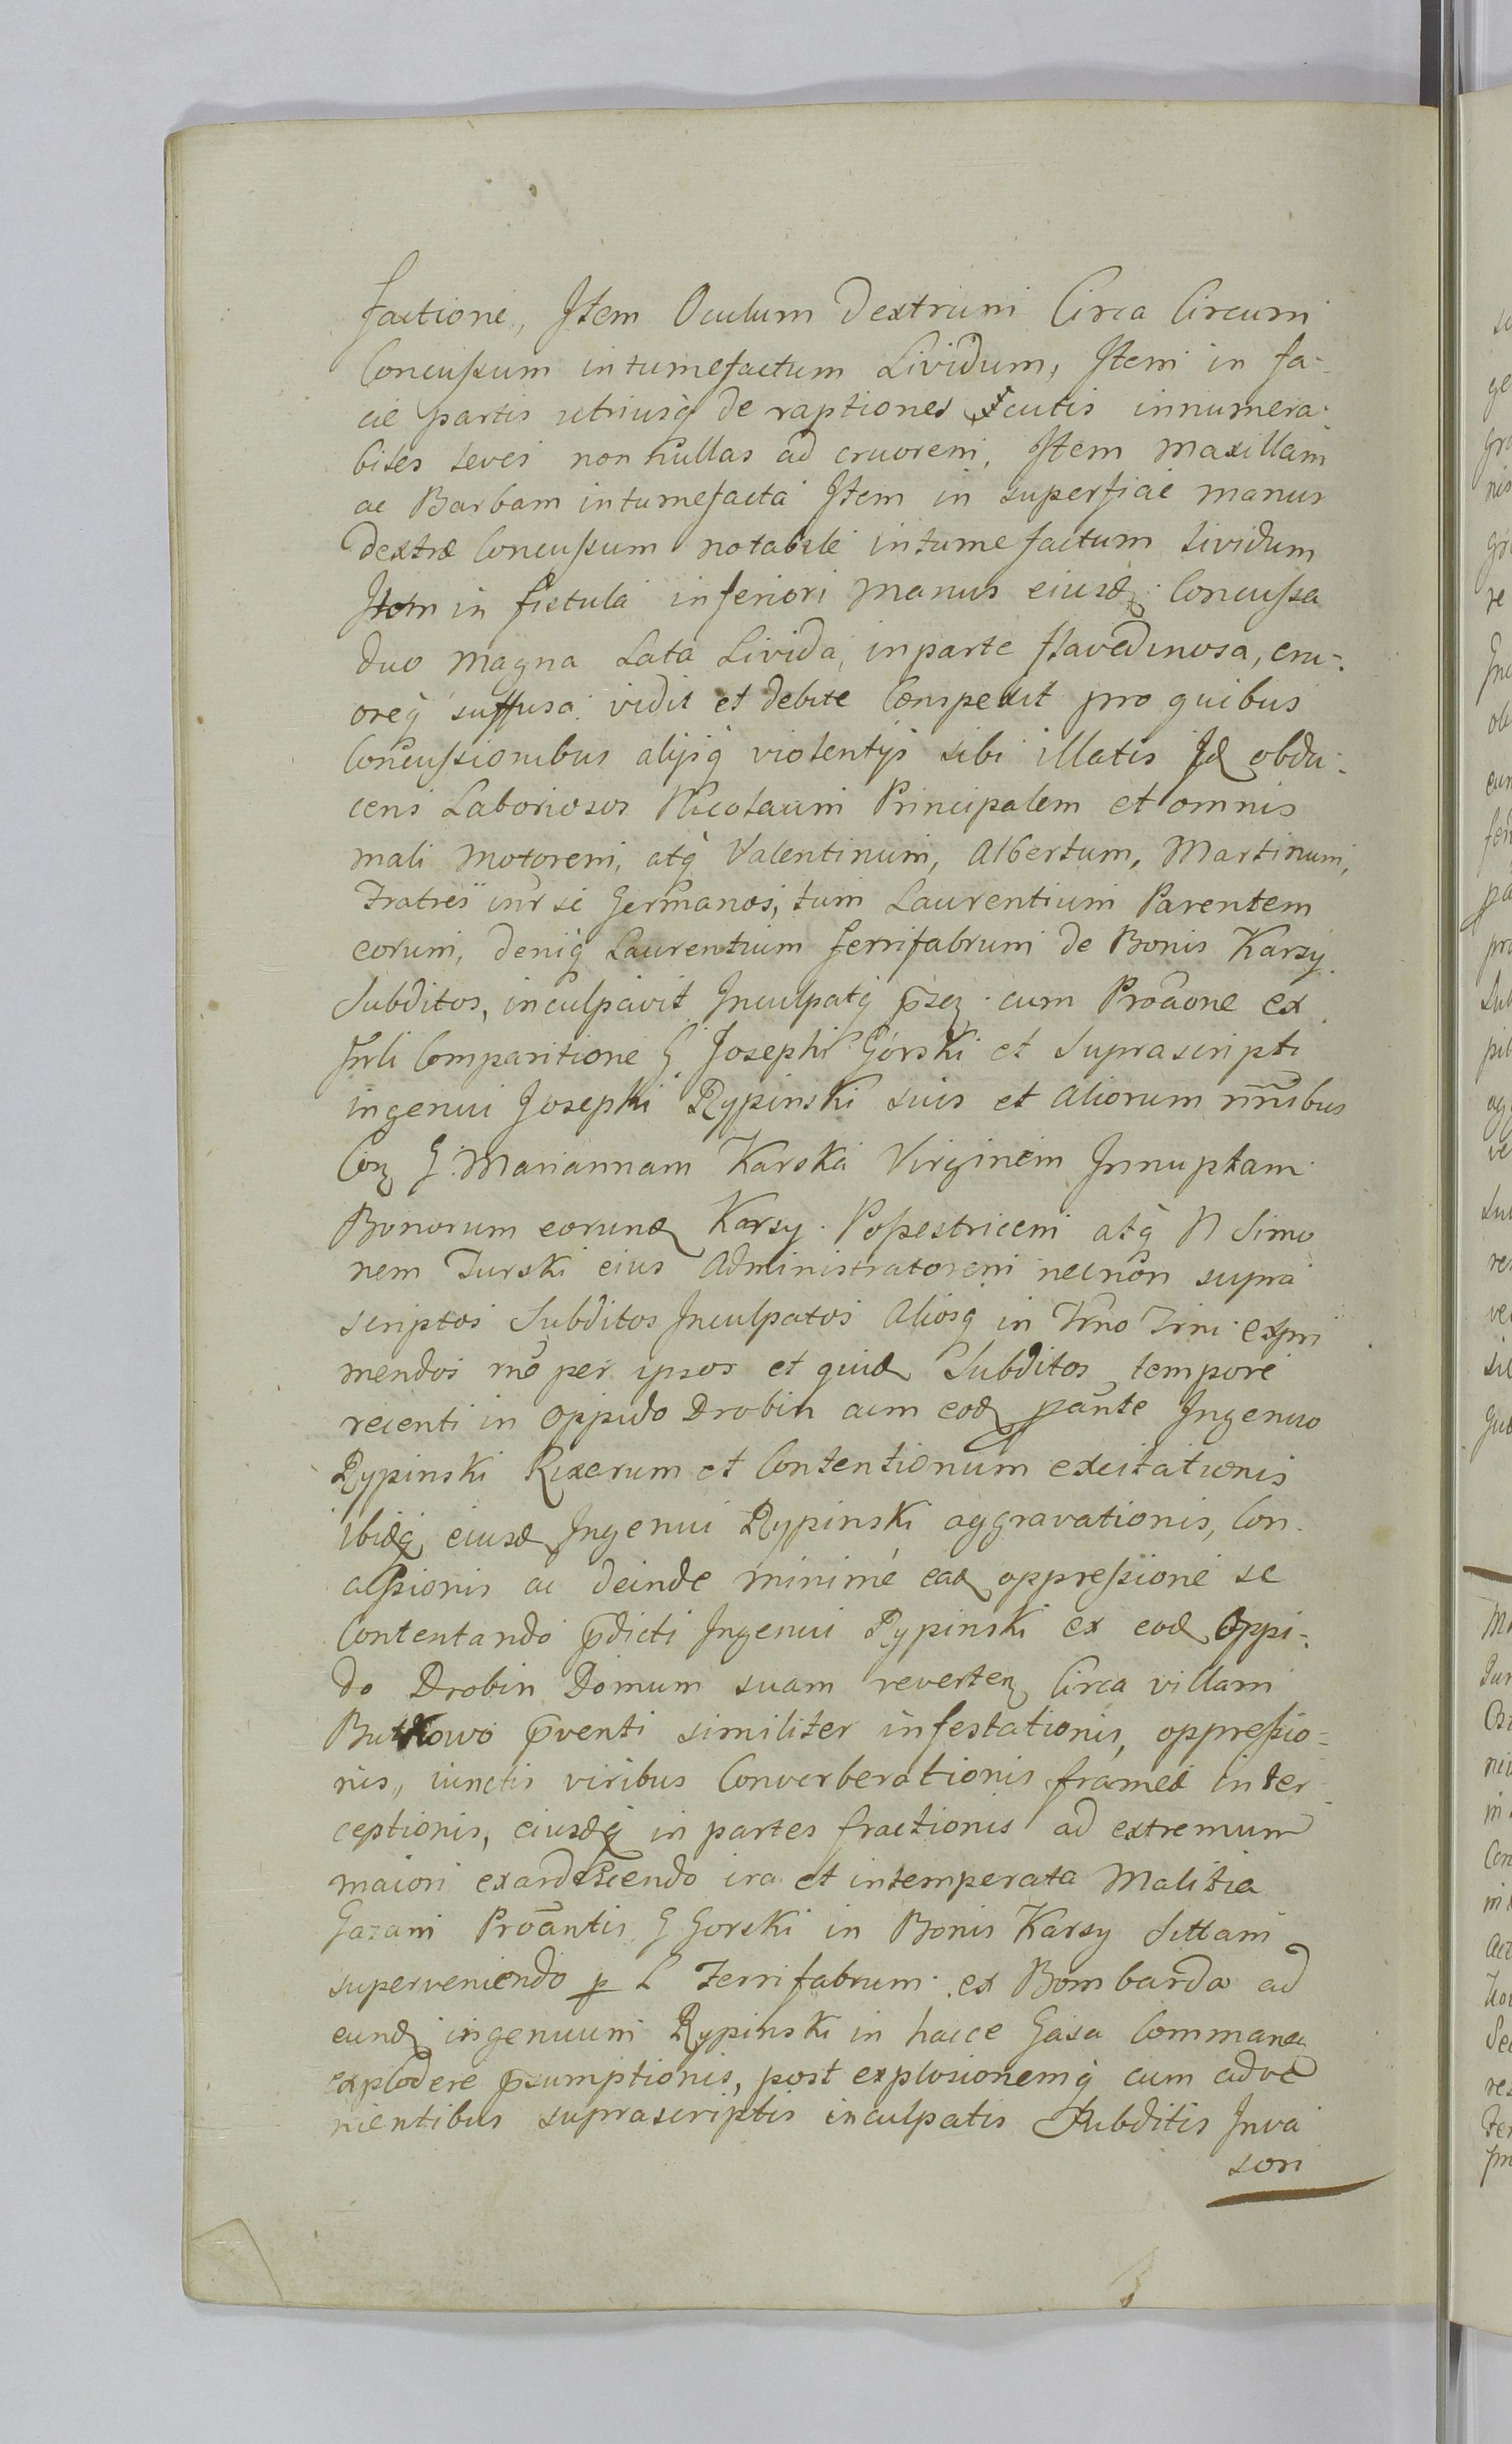 factione, Item Oculum Dextrum Circa Circum
Concussum intumefactum Lividum, Item in fa-
cie partis utriusq de raptiones cutis innumera-
biles leves nonnullas ad cruorem, Item Maxillam
ac Barbam intumefacta Item in superficie manus
Dextræ Concussum notabile intumefactum lividum
Item in fistula inferiori manus eiusd Concussa
duo magna Lata Livida, in parte flavedinosa, cru-
oreq suffusa vidit et debite Comperit pro quibus
Concussionibus alijsq violentijs sibi illatis Id obdu-
cens Laboriosos Nicolaum Principalem et omnis
mali motorem, atq Valentinum, Albertum, Martinum,
Fratres intr se Germanos, tum Laurentium Parentem
eorum, deniq Laurentium ferrifabrum de Bonis Karsy
Subditos, inculpavit Inculpatq p̄sez cum Prōāone ex
Jnrli Comparitione G Josephi Gorski et Suprascripti
ingenui Josephi Rypinski suis et aliorum nn̄ibus
Con G. Mariannam Karska Virginem Innuptam
Bonorum eorund Karsy Possestricem atq N Simo
nem Turski eius Administratorem necnon supra
scriptos Subditos Inculpatos Aliosq in Tr̄no Trni expri
mendos rn̄e per ipsos et quid Subditos tempore
recenti in oppido Drobin cum eod pānte Ingenuo
Rypinski Rixarum et Contentionum excitationis
ibidq eiusd Ingenui Rypinski aggravationis, Con-
cussionis ac deinde minime ead oppressione se
Contentando p̄dicti Ingenui Rypinski ex eod Oppi-
do Drobin Domum suam reverten Circa villam
Butkowo p̄venti similiter infestationis, oppressio-
nis, iunctis viribus Converberationis frameæ inter-
ceptionis, eiusdq in partes fractionis ad extremum
maiori exardescendo ira et intemperata Malitia
Gazam Prōantis G Gorski in Bonis Karsy Sittam
superveniendo p L Ferrifabrum ex Bombarda ad
eund ingenuum Rypinski in hacce Gasa Commanen
explodere p̄sumptionis, post explosionemq cum adve
nientibus suprascriptis inculpatis Subditis Inva
son